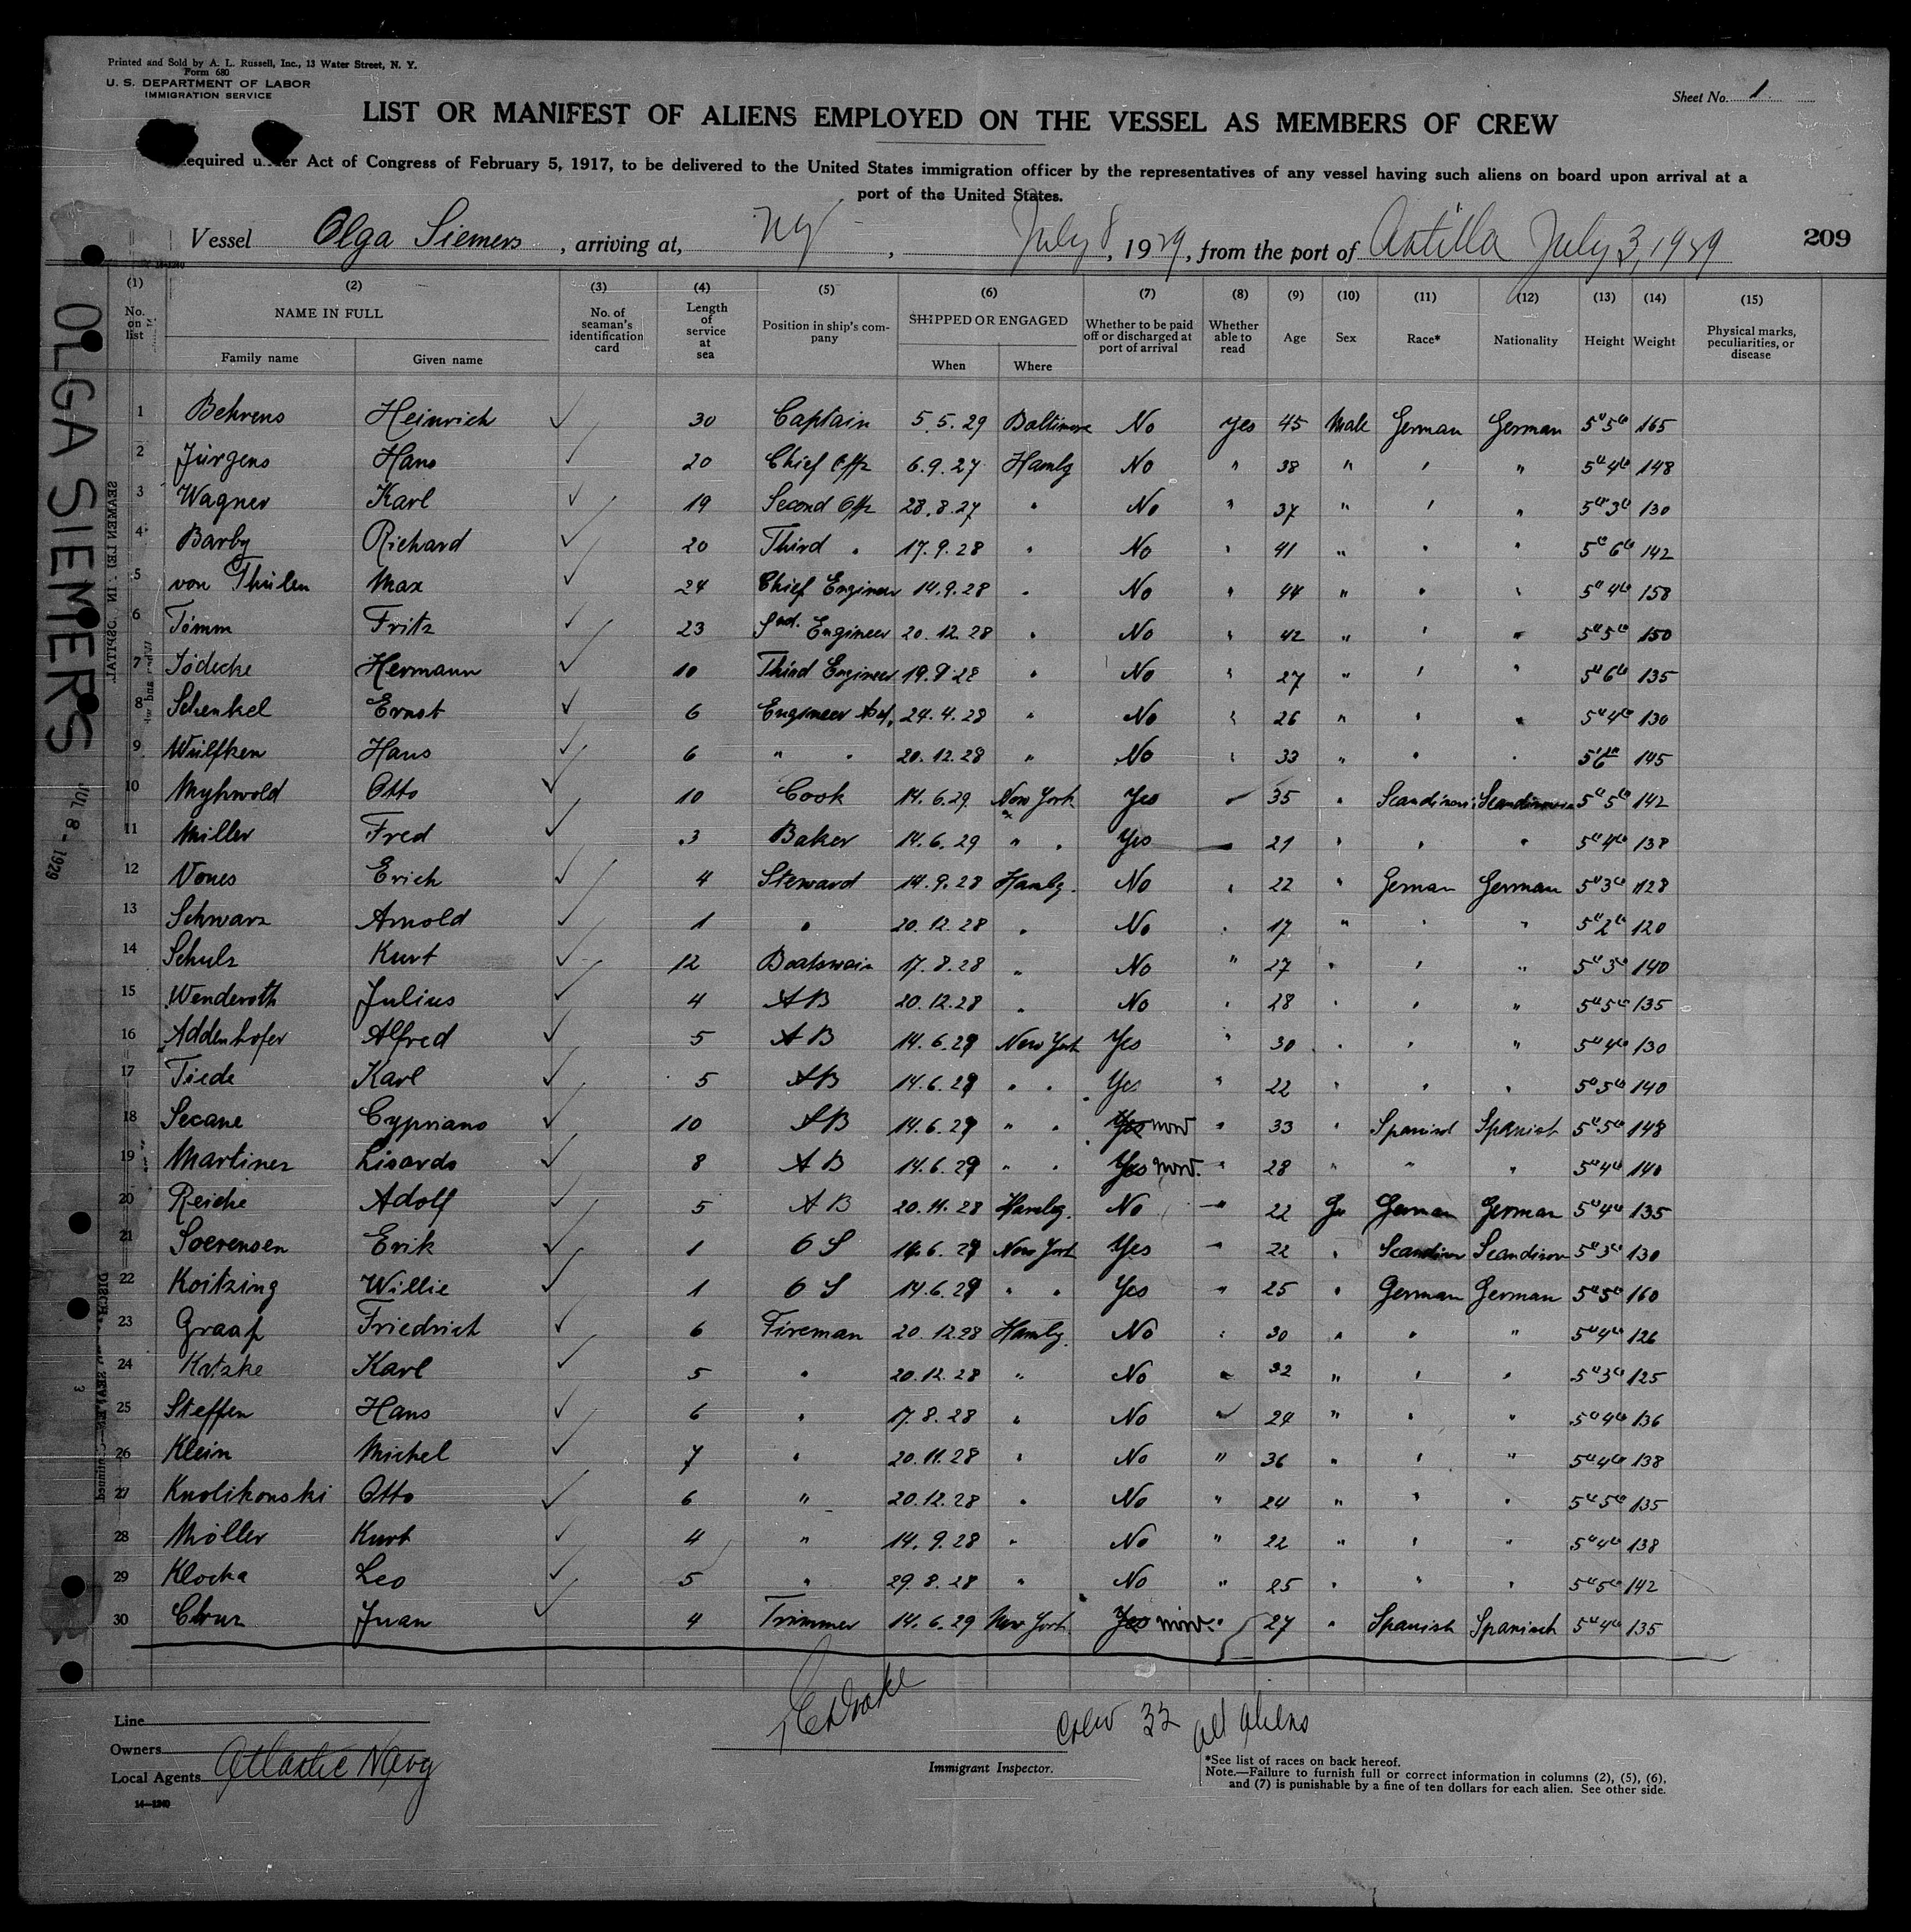 Printed and Sold by A. L. Russell, Inc., 13 Water Street, N. Y.
Form 680
U. S. DEPARTMENT OF LABOR
IMMIGRATION SERVICE
Sheet No. 1
LIST OR MANIFEST OF ALIENS EMPLOYED ON THE VESSEL AS MEMBERS OF CREW
Required under Act of Congress of February 5, 1917, to be delivered to the United States immigration officer by the representatives of any vessel having such aliens on board upon arrival at a
port of the United States.
Vessel Olga Siemers, arriving at, NY, July 8, 1929, from the port of Antilla July 3, 1929
209
OLGA SIEMERS
JUL 8 - 1929
(1) (2) (3) (4) (5) (6) (7) (8) (9) (10) (11) (12) (13) (14) (15)
No. on list NAME IN FULL No. of seaman's identification card Length of service at sea Position in ship's company SHIPPED OR ENGAGED Whether to be paid off or discharged at port of arrival Whether able to read Age Sex Race* Nationality Height Weight Physical marks, peculiarities, or disease
Family name Given name When Where
1 Behrens Heinrich ✓ 30 Captain 5.5.29 Baltimore No Yes 45 Male German German 5"5" 165
2 Jürgens Hans ✓ 20 Chief Offz 6.9.27 Hambg No " 38 " " " 5"4" 148
3 Wagner Karl ✓ 19 Second Offz 28.8.27 " No " 37 " " " 5"3" 130
4 Barby Richard ✓ 20 Third " 17.9.28 " No " 41 " " " 5"6" 142
5 von Thülen Max ✓ 24 Chief Engineer 14.9.28 " No " 44 " " " 5"4" 158
6 Timm Fritz ✓ 23 Engineer 20.12.28 " No " 42 " " " 5"5" 150
7 Jödecke Hermann ✓ 10 Third Engineer 19.9.28 " No " 27 " " " 5"6" 135
8 Schenkel Ernst ✓ 6 Engineer 24.4.28 " No " 26 " " " 5"4" 130
9 Wülfken Hans ✓ 6 " " 20.12.28 " No " 33 " " " 145
10 Myhrwold Otto ✓ 10 Cook 14.6.29 New York Yes " 35 " 5"5" 142
11 Miller Fred ✓ 3 Baker 14.6.29 " " Yes " 21 " " " 5"4" 138
12 Vones Erich ✓ 4 Steward 14.9.28 Hambg. No " 22 " German German 5"3" 128
13 Schwarz Arnold ✓ 1 " 20.12.28 " No " 17 " " " 5"2" 120
14 Schulz Kurt ✓ 12 Boatswain 17.8.28 " No " 27 " " " 5"3" 140
15 Wenderoth Julius ✓ 4 AB 20.12.28 " No " 28 " " " 5"5" 135
16 Addenhofer Alfred ✓ 5 AB 14.6.29 New York Yes " 30 " " " 5"4" 130
17 Tiede Karl ✓ 5 AB 14.6.29 " " Yes " 22 " " " 5"5" 140
18 Secane Cypriano ✓ 10 AB 14.6.29 " " Yes " 33 " Spanish Spanish 5"5" 148
19 Martinez Lisardo ✓ 8 AB 14.6.29 " " Yes " 28 " " " 5"4" 140
20 Reiche Adolf ✓ 5 AB 20.11.28 Hambg. No " 22 German German 5"4" 135
21 Soerensen Erik ✓ 1 OS 14.6.29 New York Yes " 22 " Scandinav Scandinav 5"3" 130
22 Koitzing Willie ✓ 1 OS 14.6.29 " " Yes " 25 " German German 5"5" 160
23 Graaf Friedrich ✓ 6 Fireman 20.12.28 Hambg. No " 30 " " " 5"4" 126
24 Katzke Karl ✓ 5 " 20.12.28 " No " 32 " " " 5"3" 125
25 Steffen Hans ✓ 6 " 17.8.28 " No " 24 " " " 5"4" 136
26 Klein Michel ✓ 7 " 20.11.28 " No " 36 " " " 5"4" 138
27 Knolikonski Otto ✓ 6 " 20.12.28 " No " 24 " " " 5"5" 135
28 Möller Kurt ✓ 4 " 14.9.28 " No " 22 " " " 5"4" 138
29 Klocka Leo ✓ 5 " 29.8.28 " No " 25 " " " 5"5" 142
30 Juan ✓ 4 Trimmer 14.6.29 New York Yes " 27 " Spanish Spanish 5"4" 135
Crew 32 all aliens
Line
Owners
Local Agents Atlantic Navg
Immigrant Inspector.
*See list of races on back hereof.
Note.—Failure to furnish full or correct information in columns (2), (5), (6),
and (7) is punishable by a fine of ten dollars for each alien. See other side.
14—1240